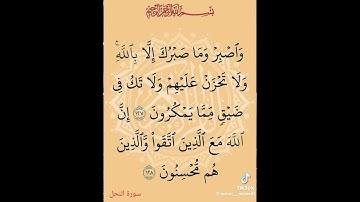 بِسْمِ اللَّهِ الرَّحْمَٰنِ الرَّحِيمِ
وَٱصْبِرْ وَمَا صَبْرُكَ إِلَّا بِٱللَّهِۚ
وَلَا تَحْزَنْ عَلَيْهِمْ وَلَا تَكُ فِى
ضَيْقٍ مِّمَّا يَمْكُرُونَ ١٢٧ إِنَّ
ٱللَّهَ مَعَ ٱلَّذِينَ ٱتَّقَوا۟ وَّٱلَّذِينَ
هُم مُّحْسِنُونَ ١٢٨
سورة النحل
TikTok